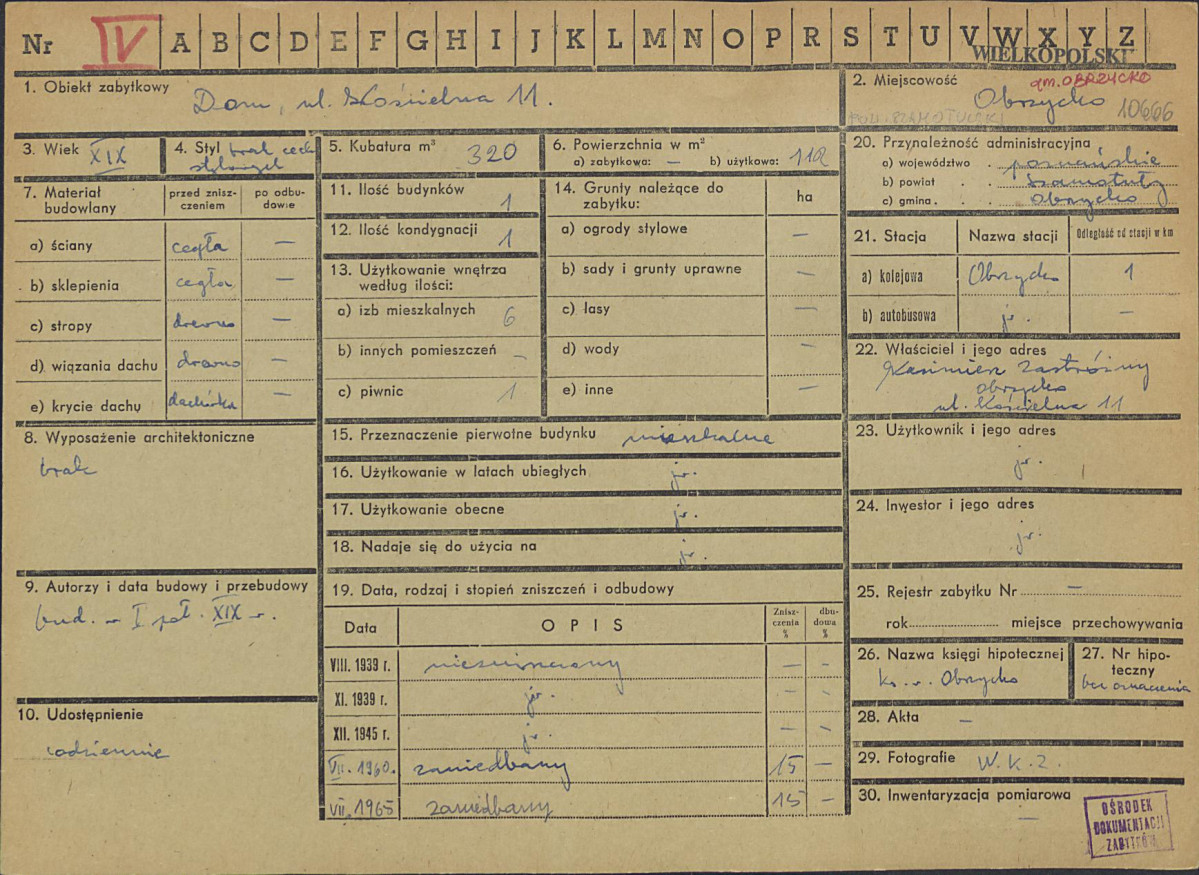 Nr IV A B C D E F G H I J K L M N O P R S T U V W X Y Z
WIELKOPOLSKI
1. Obiekt zabytkowy
Dom, ul. Kościelna 11.
2. Miejscowość
gm. OBRZYCKO
Obrzycko 10666
3. Wiek XIX
4. Styl brak cech
stylowych
5. Kubatura m³ 320
6. Powierzchnia w m²
a) zabytkowa: — b) użytkowa: 112
7. Materiał budowlany
przed zniszczeniem
po odbudowie
a) ściany cegła —
b) sklepienia cegła —
c) stropy drewno —
d) wiązania dachu drewno —
e) krycie dachu dachówka —
8. Wyposażenie architektoniczne
brak
9. Autorzy i data budowy i przebudowy
bud. w I poł. XIX w.
10. Udostępnienie
codziennie
11. Ilość budynków 1
12. Ilość kondygnacji 1
13. Użytkowanie wnętrza
według ilości:
a) izb mieszkalnych 6
b) innych pomieszczeń —
c) piwnic 1
14. Grunty należące do
zabytku: ha
a) ogrody stylowe —
b) sady i grunty uprawne —
c) lasy —
d) wody —
e) inne —
15. Przeznaczenie pierwotne budynku mieszkalne
16. Użytkowanie w latach ubiegłych jw.
17. Użytkowanie obecne jw.
18. Nadaje się do użycia na jw.
19. Data, rodzaj i stopień zniszczeń i odbudowy
Data OPIS Zniszczenia % dbudowa %
VIII. 1939 r. niezniszczony — —
XI. 1939 r. jw. — —
XII. 1945 r. jw. — —
VII. 1960. zaniedbany 15 —
VII. 1965 zaniedbany 15 —
20. Przynależność administracyjna
a) województwo poznańskie
b) powiat Szamotuły
c) gmina Obrzycko
21. Stacja Nazwa stacji Odległość od stacji w km
a) kolejowa Obrzycko 1
b) autobusowa jw. —
22. Właściciel i jego adres
Kazimierz Zastróżny
Obrzycko
ul. Kościelna 11
23. Użytkownik i jego adres
jw.
24. Inwestor i jego adres
jw.
25. Rejestr zabytku Nr —
rok miejsce przechowywania
26. Nazwa księgi hipotecznej
ks. w. Obrzycko
27. Nr hipoteczny
bez oznaczenia
28. Akta —
29. Fotografie W. K. Z.
30. Inwentaryzacja pomiarowa
—
OŚRODEK
DOKUMENTACJI
ZABYTKÓW